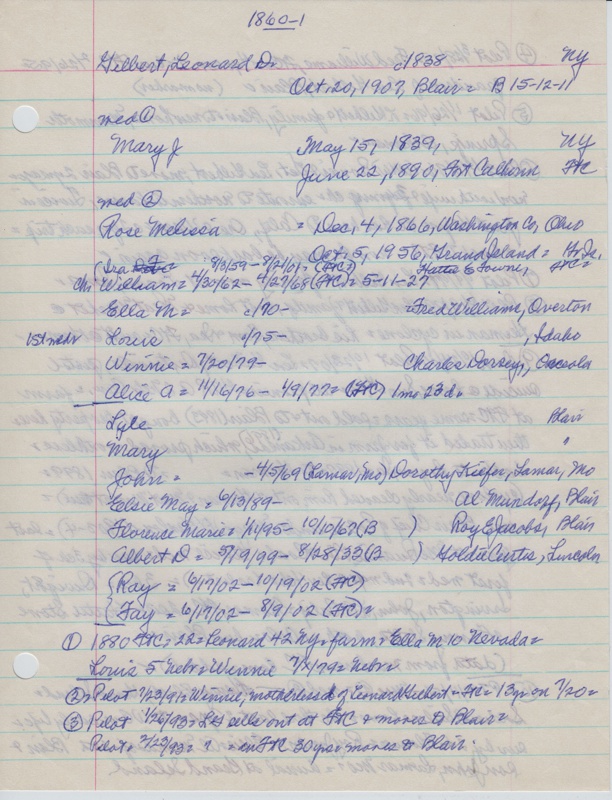 1860-1
Gilbert, Leonard D. c1838 NY
Oct. 20, 1907, Blair = B 15-12-11
med ①
Mary J May 15, 1839, NY
June 22, 1890, Fort Calhoun FTC
med ②
Rose Melissa = Dec. 4, 1866, Washington Co, Ohio
Oct. 5, 1956, Grand Island =
(Ira 8/3/59 - 8/21/61 = (FTC) Hattie E Towne, FTC =
William = 4/30/62 - 4/27/68 (FTC) = 5-11-27
Ella M = c/70- = Fred Williams, Overton
Louis c/75- , Idaho
Winnie = 7/20/79- Charles Dorsey, Osceola
Alice A = 11/16/76 - 4/9/77 = (FTC) 1 mo 23 d.
Lyle Blair
Mary "
John = -4/5/69 (Lamar, Mo) Dorothy Kiefer, Lamar, Mo
Elsie May = 6/13/89- Al Mundorf, Blair
Florence Marie = 1/11/95 - 10/10/67 (B ) Roy E Jacobs, Blair
Albert D = 5/19/99 - 8/28/33 (B ) Golda Curtis, Lincoln
{Ray = 6/17/02 - 10/19/02 (FTC)
{Fay = 6/17/02 - 8/9/02 (FTC) =
① 1880 FTC = 22 = Leonard 42 NY = farm = Ella M 10 Nevada =
Louis 5 Nebr = Winnie 7/x/79 = Nebr =
② = Pilot 7/23/91 = Winnie, motherless d of Leonard Gilbert = FTC = 13 yr on 7/20 =
③ Pilot 1/26/93 = L G sells out at FTC & moves to Blair =
Pilot = 3/23/93 = ? = in FTC 30 yrs = moves to Blair.